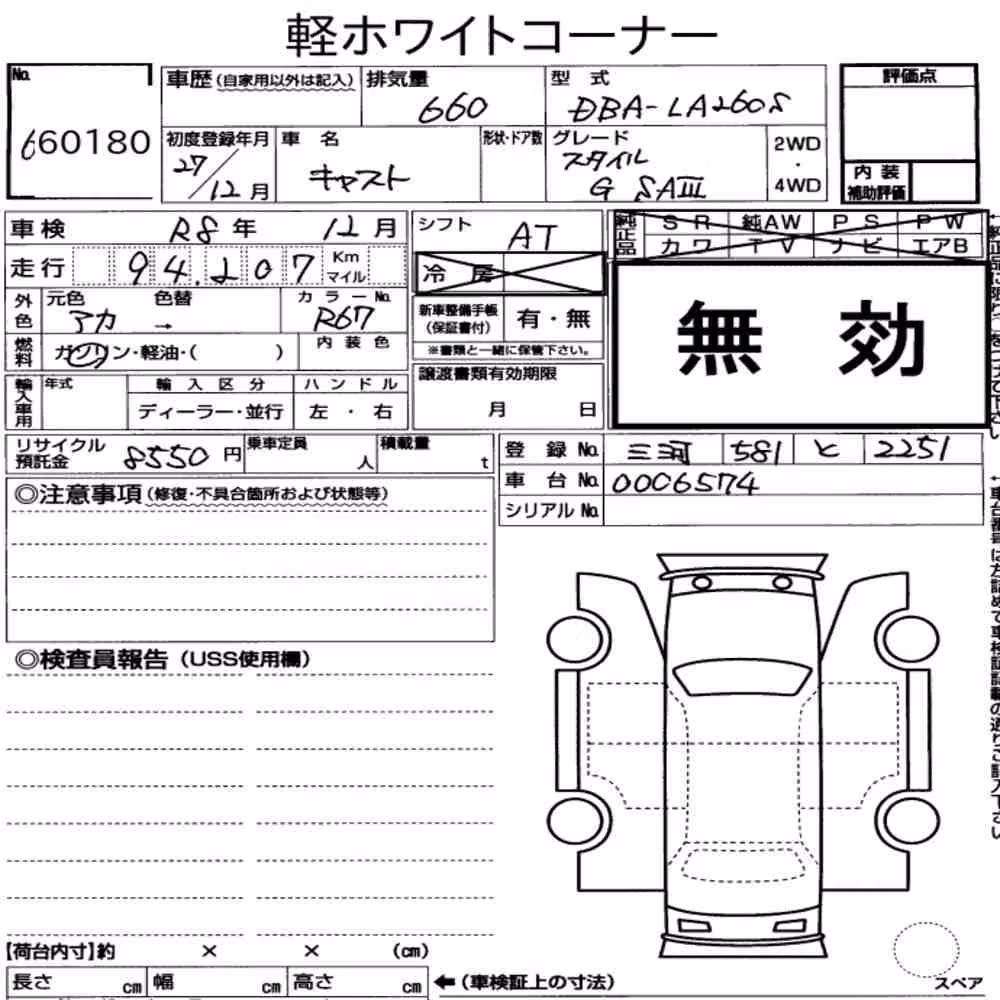 軽ホワイトコーナー
No. 660180
車歴 (自家用以外は記入) 排気量 660 型式 DBA-LA260S
評価点
内装補助評価
初度登録年月 27/12月 車名 キャスト 形状・ドア数 グレード スタイル G SAⅢ 2WD・4WD
車検 R8年 12月
シフト AT
純正品 SR 純AW PS PW
カワ TV ナビ エアB
走行 94,207 Km マイル
冷房
無効
外色 元色 アカ 色替 → カラーNo. R67
新車整備手帳 (保証書付) 有・無
※書類と一緒に保管下さい。
燃料 ガソリン・軽油・( ) 内装色
輸入車用 年式 輸入区分 ハンドル
ディーラー・並行 左・右
譲渡書類有効期限
月 日
リサイクル預託金 8550円 乗車定員 人 積載量 t
登録No. 三河 581 と 2251
車台No. 0006574
シリアルNo.
◎注意事項 (修復・不具合箇所および状態等)
◎検査員報告 (USS使用欄)
【荷台内寸】約 × × (cm)
長さ cm 幅 cm 高さ cm ←(車検証上の寸法)
スペア